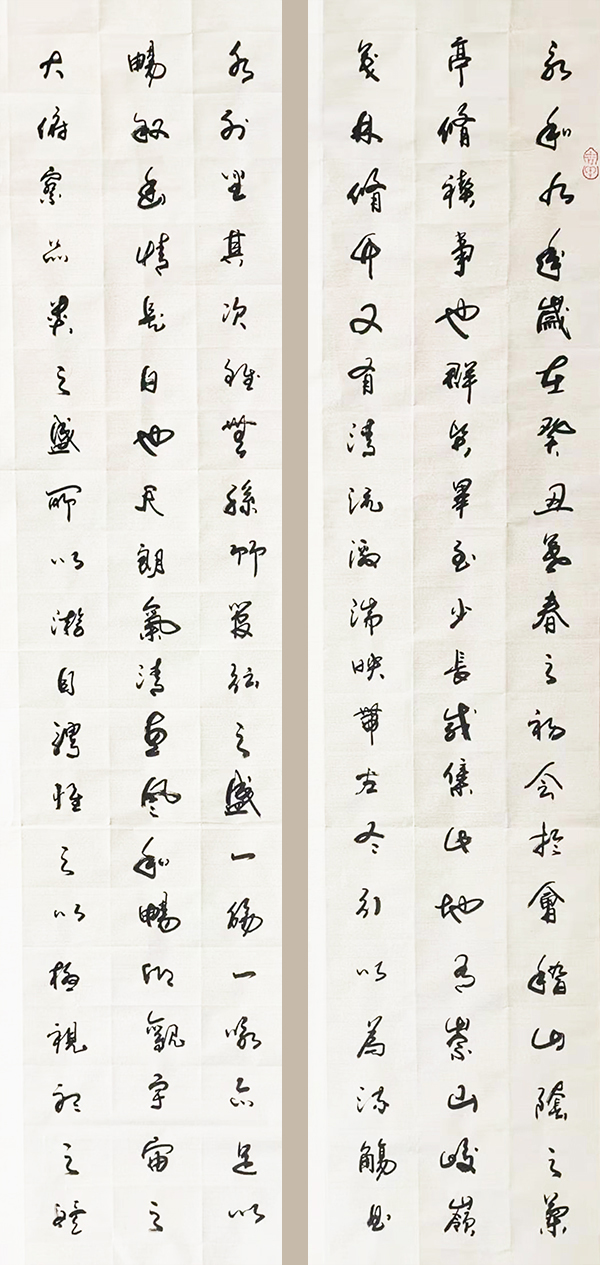 永和九年歲在癸丑暮春之初会於會稽山陰之蘭
亭脩禊事也群賢畢至少長咸集此地有崇山峻嶺
茂林脩竹又有清流激湍映帶左右引以為流觴曲
水列坐其次雖無絲竹管弦之盛一觴一詠亦足以
暢敘幽情是日也天朗氣清惠風和暢仰觀宇宙之
大俯察品類之盛所以游目騁懷足以極視聽之娛